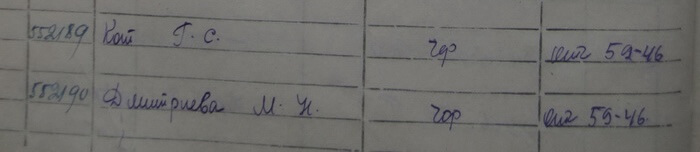 552189 Кот Г. С. гор 59-46
552190 Дмитриева М. Н. гор 59-46